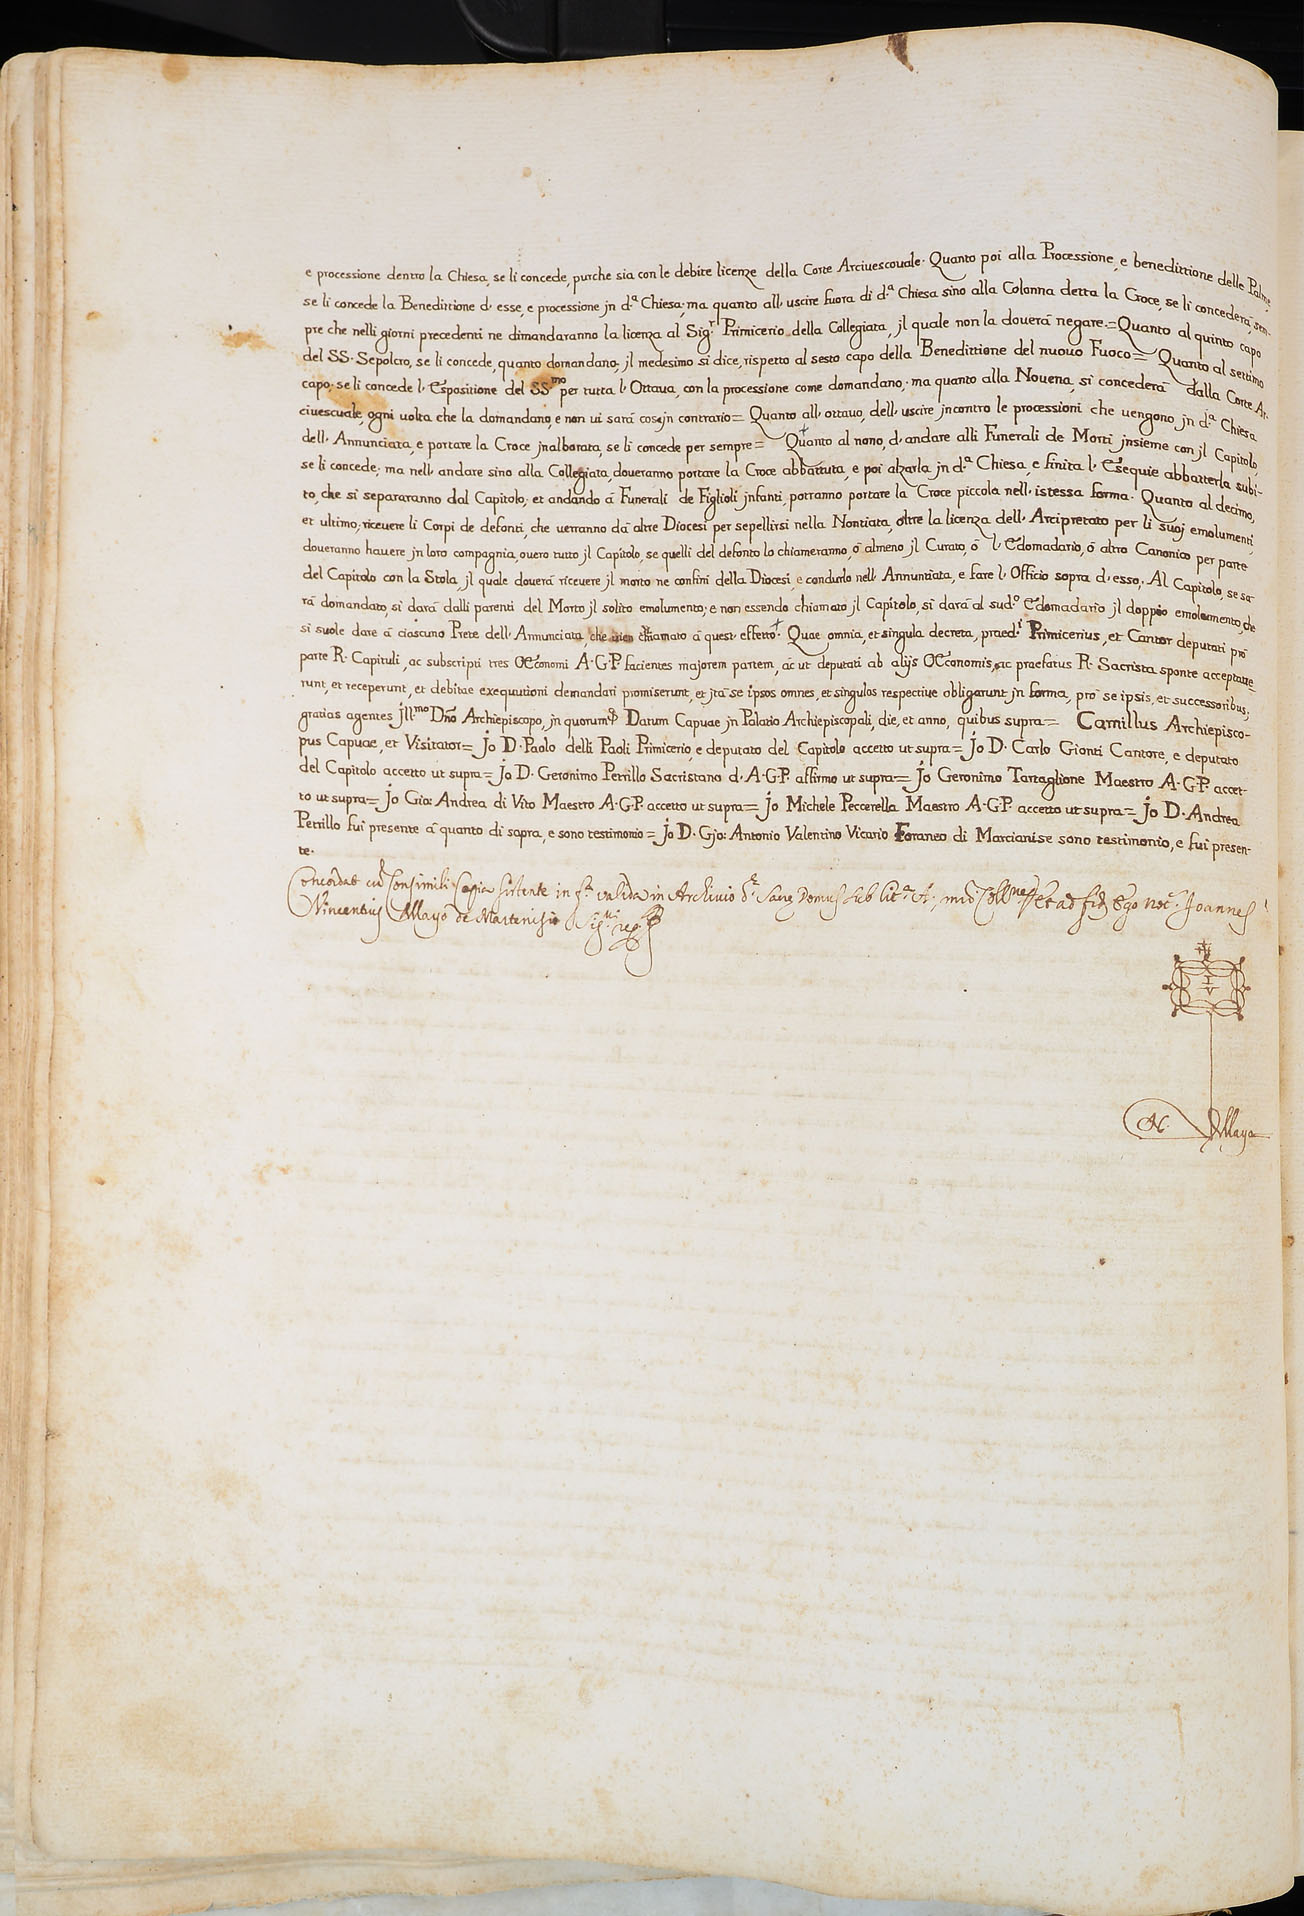 e processione dentro la Chiesa, se li concede, purche sia con le debite licenze della Corte Arciuescouale. Quanto poi alla Processione, e benedittione delle Palme,
se li concede la Benedittione d'esse, e processione jn d.ª Chiesa; ma quanto all'uscire fuora di d.ª Chiesa sino alla Colonna detta la Croce, se li concederà, sem-
pre che nelli giorni precedenti ne dimandaranno la licenza al Sig.r Primicerio della Collegiata, jl quale non la douerà negare.= Quanto al quinto capo
del SS. Sepolcro, se li concede, quanto domandano; jl medesimo si dice, rispetto al sesto capo della Benedittione del nuouo Fuoco= Quanto al settimo
capo, se li concede l'Espositione del SS.mo per tutta l'Ottaua, con la processione come domandano; ma quanto alla Nouena, si concederà dalla Corte Ar-
ciuescuale, ogni uolta che la domandano, e non ui sarà cosa jn contrario= Quanto all'ottauo, dell'uscire jncontro le processioni che uengono jn d.ª Chiesa
dell'Annunciata, e portare la Croce jnalborata, se li concede per sempre= Quanto al nono, d'andare alli Funerali de Morti jnsieme con jl Capitolo,
se li concede; ma nell'andare sino alla Collegiata, doueranno portare la Croce abbattuta, e poi alzarla jn d.ª Chiesa, e finita l'Esequie abbatterla subi-
to, che si separaranno dal Capitolo; et andando à Funerali de Figlioli jnfanti, potranno portare la Croce piccola nell'istessa forma. Quanto al decimo,
et ultimo, riceuere li Corpi de defonti, che uerranno dà altre Diocesi per sepellirsi nella Nontiata, oltre la licenza dell'Arcipretato per li suoj emolumenti,
doueranno hauere jn loro compagnia, ouero tutto jl Capitolo, se quelli del defonto lo chiameranno, ò almeno jl Curato, ò l'Edomadario, ò altro Canonico per parte
del Capitolo con la Stola, jl quale douerà riceuere jl morto ne confini della Diocesi, e condurlo nell'Annuntiata, e fare l'Officio sopra d'esso; Al Capitolo, se sa-
rà domandato, si darà dalli parenti del Morto jl solito emolumento; e non essendo chiamato jl Capitolo, si darà al sud.º Edomadario jl doppio emolomento, che
si suole dare à ciascuno Prete dell'Annunciata, che uien chiamato à quest'effetto. Quae omnia, et singula decreta, praed.i Primicerius, et Cantor deputati prò
parte R. Capituli, ac subscripti tres OEconomi A.G.P. facientes majorem partem, àc ut deputati ab alijs OEconomis, ac praefatus R. Sacrista sponte acceptaue-
runt, et receperunt, et debitae exequutioni demandari promiserunt, et jtà se ipsos omnes, et singulos respectiue obligarunt jn forma, prò se ipsis, et successoribus;
gratias agentes jll.mo Dño Archiepiscopo, jn quorum Datum Capuae jn Palatio Archiepiscopali, die, et anno, quibus supra= Camillus Archiepisco-
pus Capuae, et Visitator= Jo D. Paolo delli Paoli Primicerio, e deputato del Capitolo accetto ut supra= Jo D. Carlo Gionti Cantore, e deputato
del Capitolo accetto ut supra= Jo D. Geronimo Petrillo Sacristano d'A.G.P. affirmo ut supra= Jo Geronimo Tartaglione Maestro A.G.P. accet-
to ut supra= Jo Gio: Andrea di Vito Maestro A.G.P. accetto ut supra= Jo Michele Peccerella Maestro A.G.P. accetto ut supra= Jo D. Andrea
Petrillo fui presente à quanto di sopra, e sono testimonio= Jo D. Gjo: Antonio Valentino Vicario Foraneo di Marcianise sono testimonio, e fui presen-
te.
Concordat cũ consimili copia sistente in valida in Archiuio Domus sub A; et ad fid Ego Not.r Joannes
Vincentius Mayo de Martenisio
I
V
N. Mayo